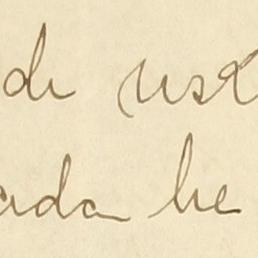 de ust
ada he